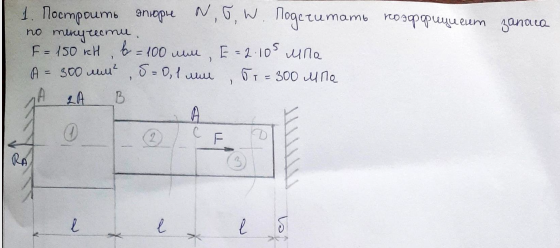 1. Построить эпюры N, σ, W. Подсчитать коэффициент запаса
по текучести.
F = 150 кН, b = 100 мм, E = 2·10⁵ МПа
A = 300 мм², δ = 0,1 мм, σт = 300 МПа
A 2A B A
1 2 C F D
RA 3
l l l δ